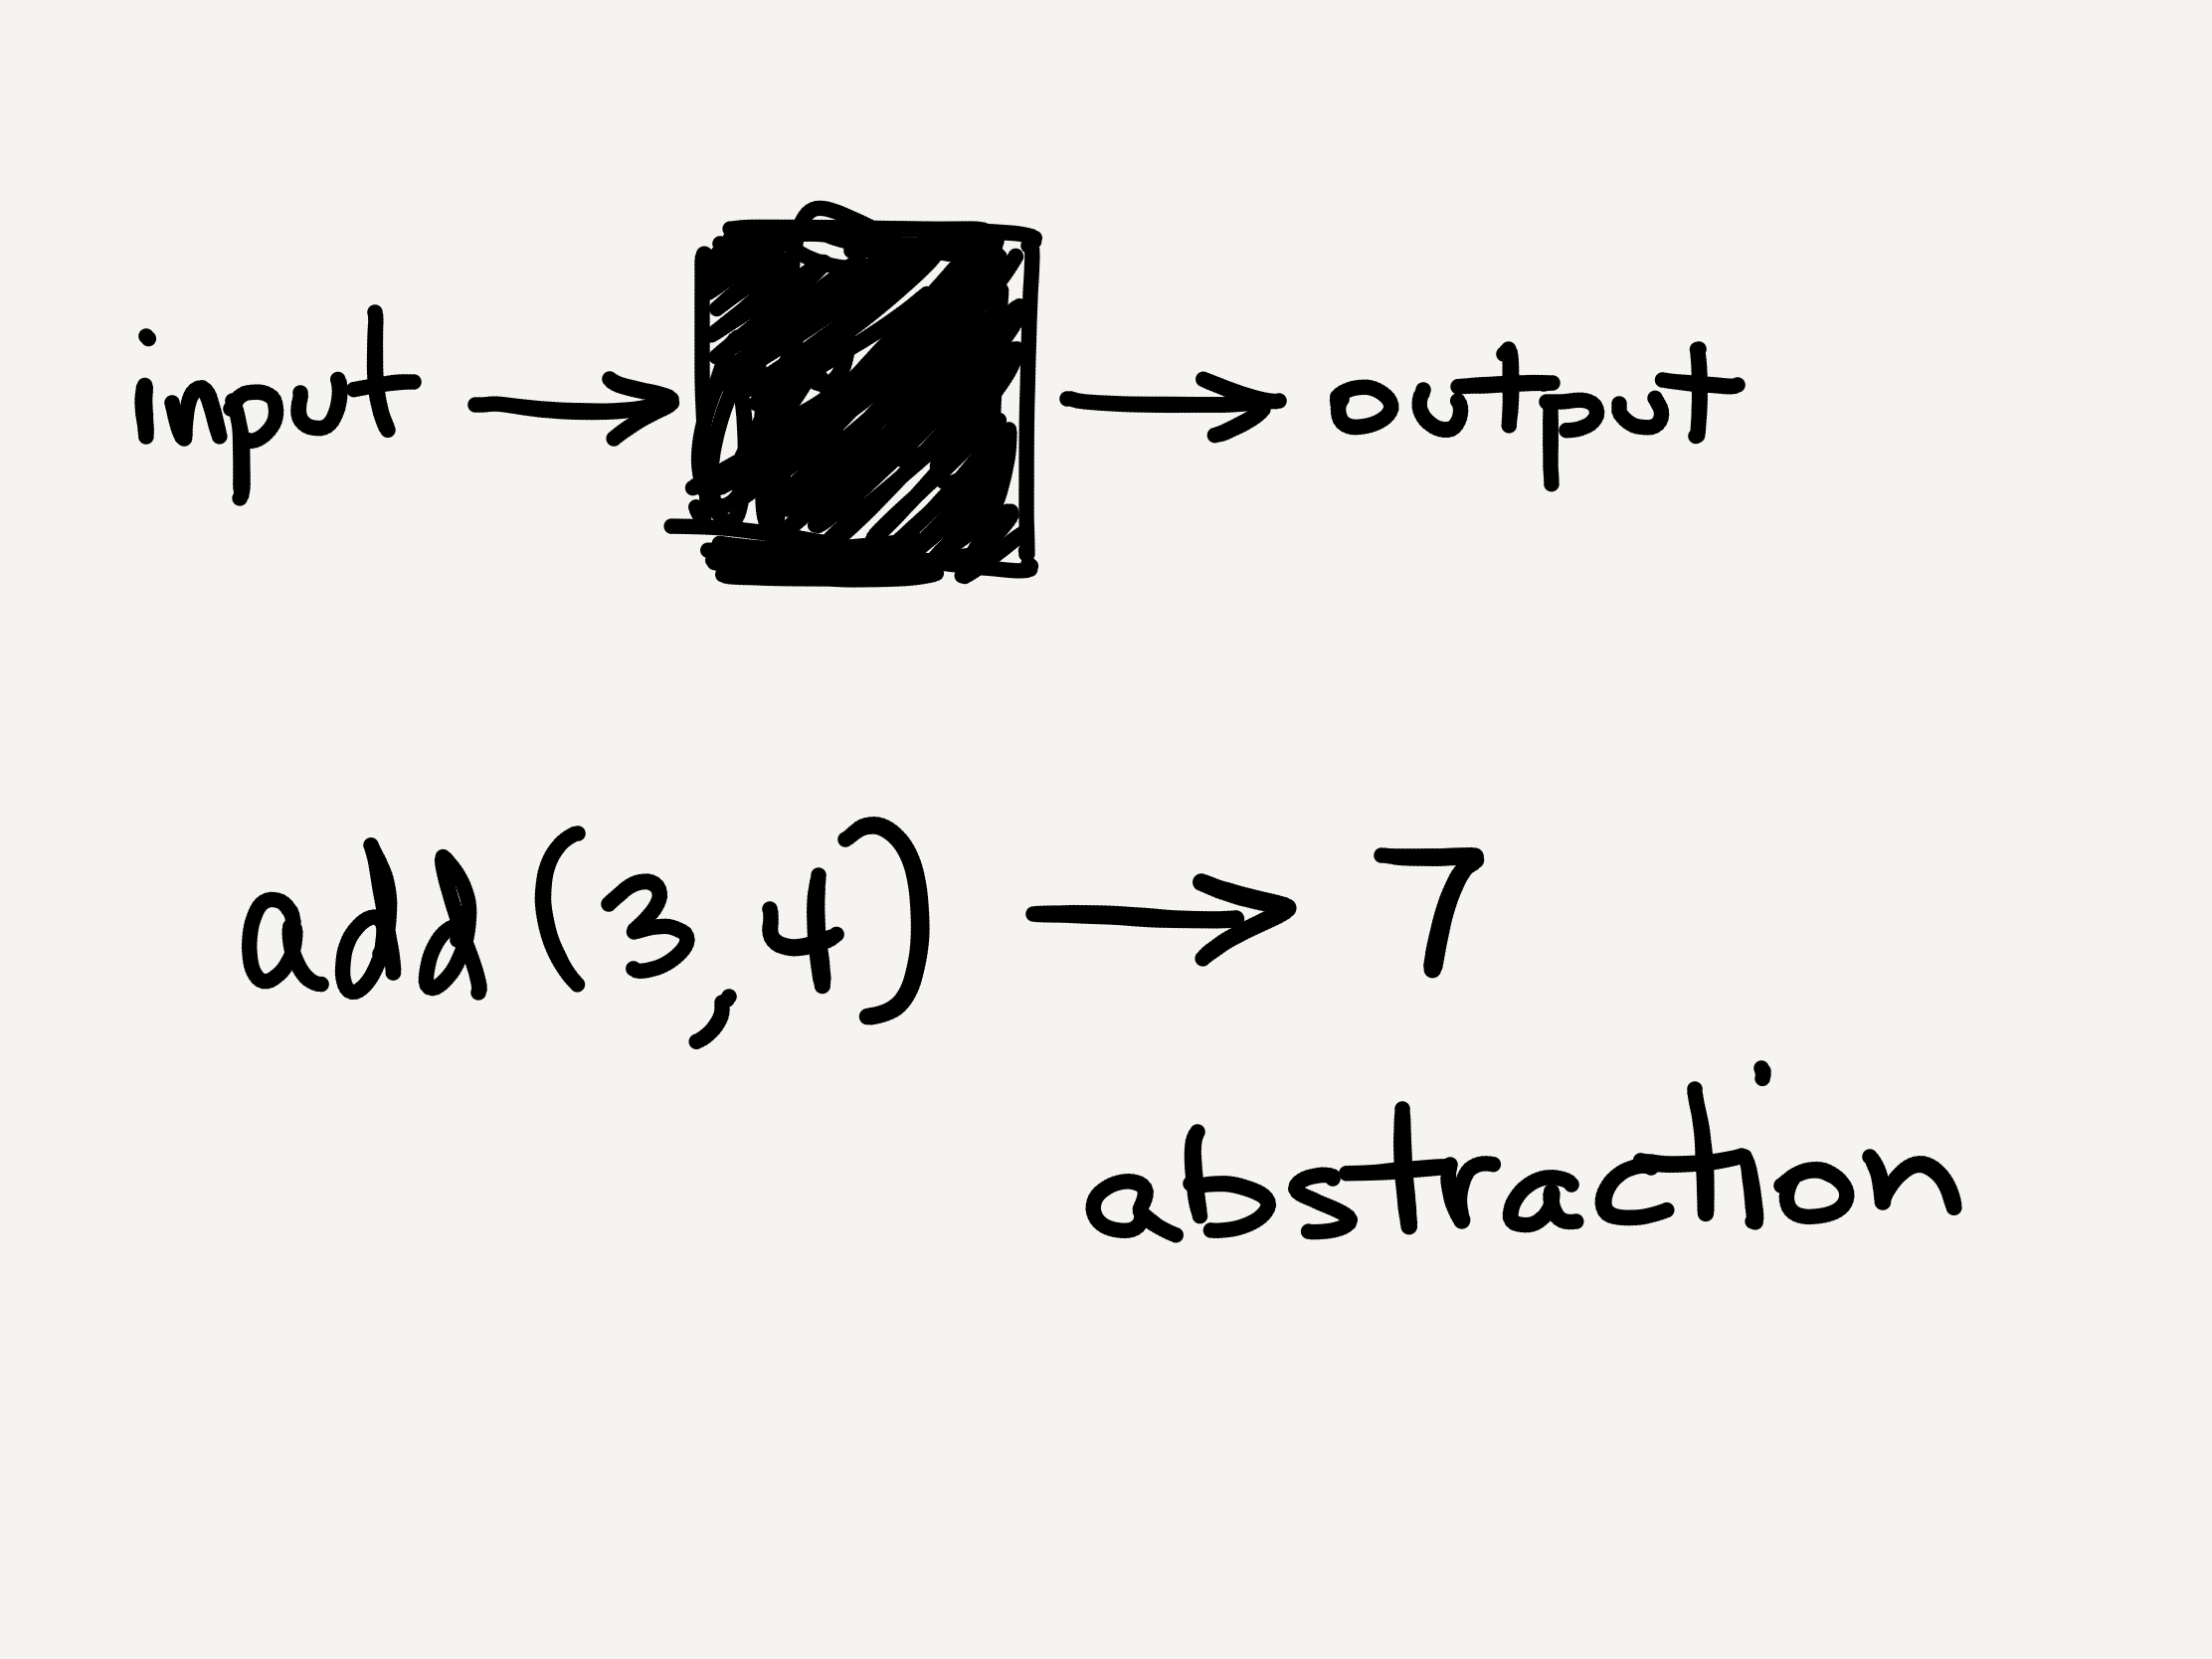 input → output
add(3,4) → 7
abstraction